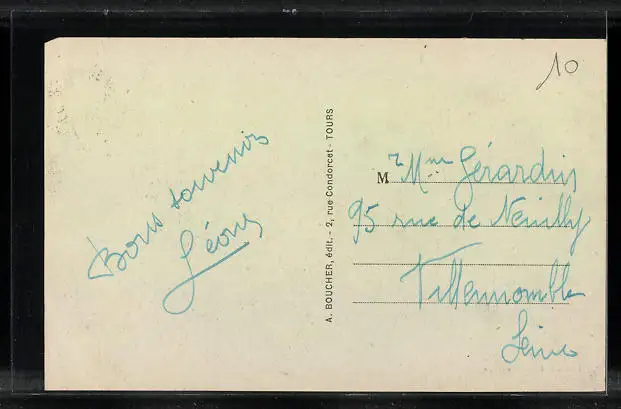 10
Bons souvenirs
Léone
A. BOUCHER, édit. - 2, rue Condorcet - TOURS
Mr Mme Gérardin
95 rue de Neuilly
Villemomble
Seine